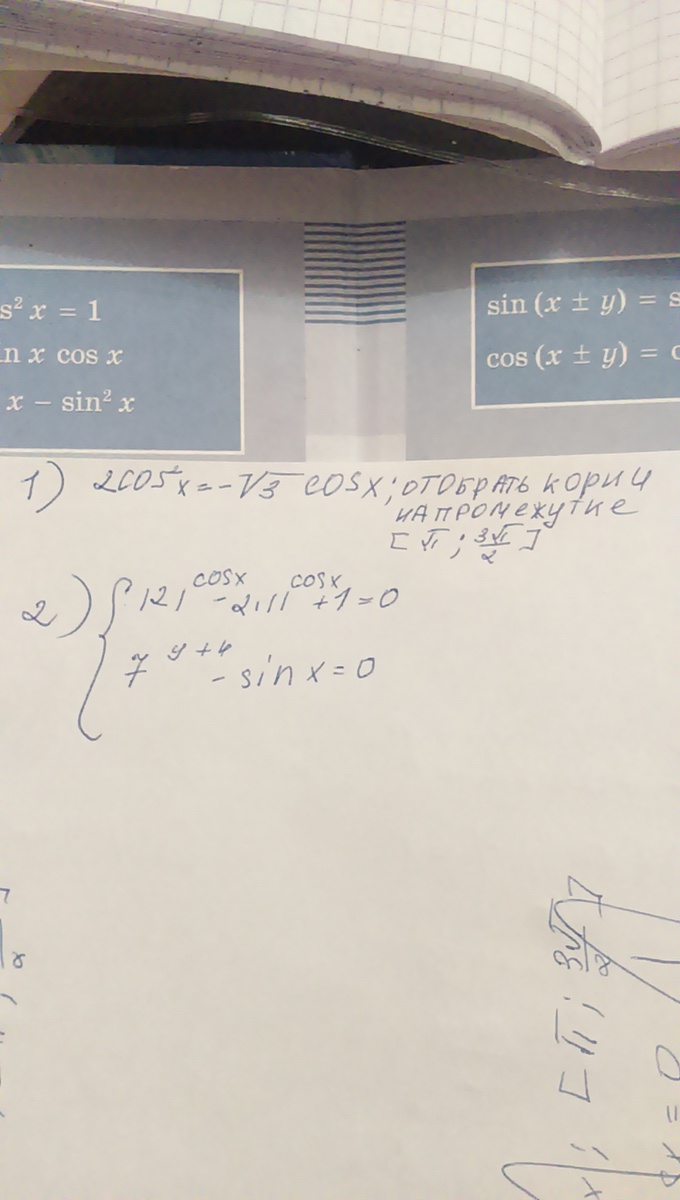 s² x = 1
n x cos x
x − sin² x
sin (x ± y) = s
cos (x ± y) = c
1) 2cos²x = -√3 cosx; отобрать корни
на промежутке
[π; 3π/2]
2) { 121^cosx - 2·11^cosx + 1 = 0
7^y+4 - sin x = 0
[π; 3π/2]
x = 0